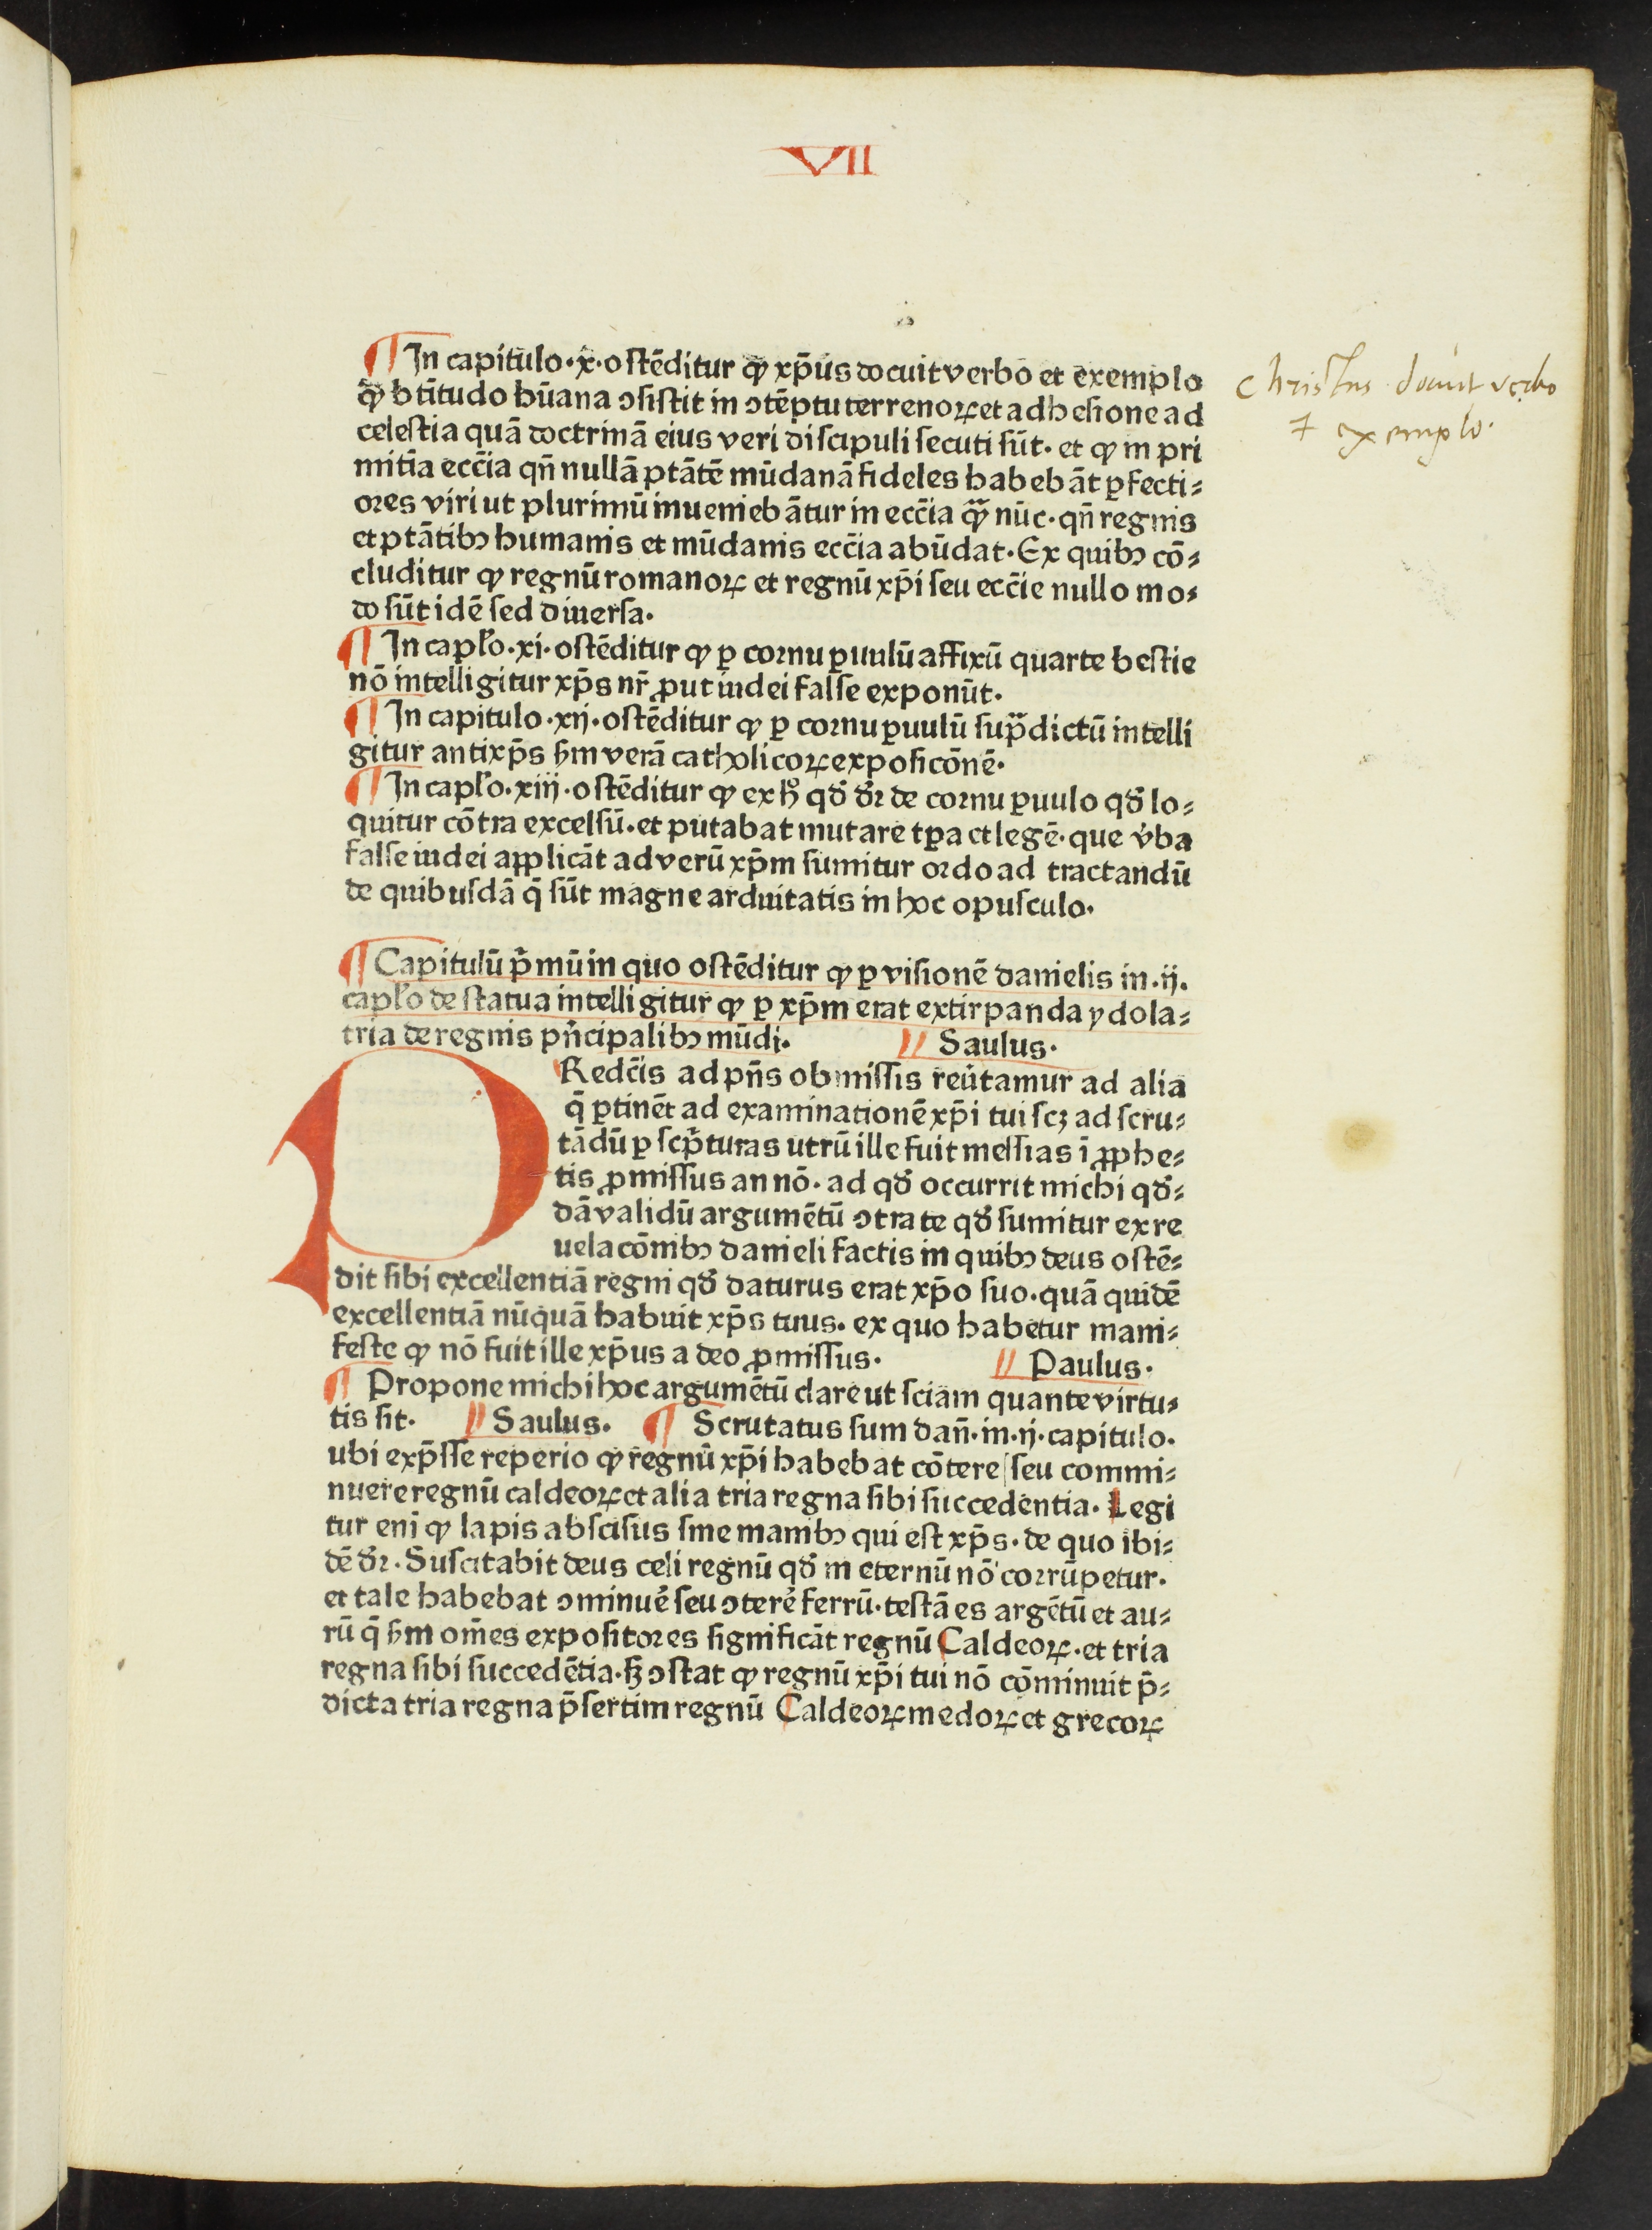 VII
¶ In capitulo·x·ostēditur ꝙ xp̄us docuit verbo et exemplo
Christus docuit verbo
ꝙ btītudo hūana ↄsistit in ↄtēptu terrenoꝝ et adhesione ad
& exemplo·
celestia quā doctrinā eius veri discipuli secuti sūt· et ꝙ in pri
mitīa ecc̄ia qn̄ nullā ptātē mūdanā fideles habebāt ꝑfecti⸗
ores viri ut plurimū inueniebātur in ecc̄ia qᷓ nūc· qn̄ regnis
et ptātibꝰ humanis et mūdanis ecc̄ia abūdat· Ex quibꝰ cō⸗
cluditur ꝙ regnū romanoꝝ et regnū xp̄i seu ecc̄ie nullo mo⸗
do sūt idē sed diuersa·
¶ In capło·xi·ostēditur ꝙ ꝑ cornu ꝑuulū affixū quarte bestie
nō intelligitur xp̄s nr̄ ꝓut iudei false exponūt·
¶ In capitulo·xij·ostēditur ꝙ ꝑ cornu ꝑuulū sup̄dictū intelli
gitur antixp̄s ẜm verā catholicoꝝ exposicōnē·
¶ In capło·xiij·ostēditur ꝙ ex hͦ qđ dr̄ de cornu ꝑuulo qđ lo⸗
quitur cōtra excelsū·et putabat mutare tꝑa et legē· que v̓ba
false iudei applicāt ad verū xp̄m sumitur ordo ad tractandū
de quibusdā q̄ sūt magne arduitatis in hoc opusculo·
¶ Capitulū p̄mū in quo ostēditur ꝙ ꝑ visionē danielis in·ij·
capło de statua intelligitur ꝙ ꝑ xp̄m erat extirpanda ydola⸗
tria de regnis pn̓cipalibꝰ mūdi· // Saulus·
PRedc̄is ad pn̄s obmissis reu̓tamur ad alia
q̄ ꝑtinēt ad examinationē xp̄i tui scꝫ ad scru⸗
tādū ꝑ scp̄turas utrū ille fuit messias ī ꝓphe⸗
tis ꝓmissus an nō· ad qđ occurrit michi qđ⸗
dā validū argumētū ↄtra te qđ sumitur ex re
uelacōnibꝰ danieli factis in quibꝰ deus ostē⸗
dit sibi excellentiā regni qđ daturus erat xp̄o suo·quā quidē
excellentiā nūquā habuit xp̄s tuus· ex quo habetur mani⸗
feste ꝙ nō fuit ille xp̄us a deo ꝓmissus· // Paulus·
¶ Propone michi hoc argumētū clare ut sciam quante virtu⸗
tis sit· // Saulus· ¶ Scrutatus sum dan̄·in·ij·capitulo·
ubi exp̄sse reperio ꝙ regnū xp̄i habebat cōtere seu commi⸗
nuere regnū caldeoꝝ et alia tria regna sibi succedentia· Legi
tur enī ꝙ lapis abscisus sine manibꝰ qui est xp̄s· de quo ibi⸗
dē dr̄· Suscitabit deus celi regnū qđ in eternū nō corrūpetur·
et tale habebat ↄminue᷑ seu ↄtere᷑ ferrū·testā es argētū et au⸗
rū q̄ ẜm om̄es expositores significāt regnū Caldeoꝝ·et tria
regna sibi succedētia·sꝫ ↄstat ꝙ regnū xp̄i tui nō cōminuit p̄⸗
dicta tria regna p̄sertim regnū Caldeoꝝ medoꝝ et grecoꝝ